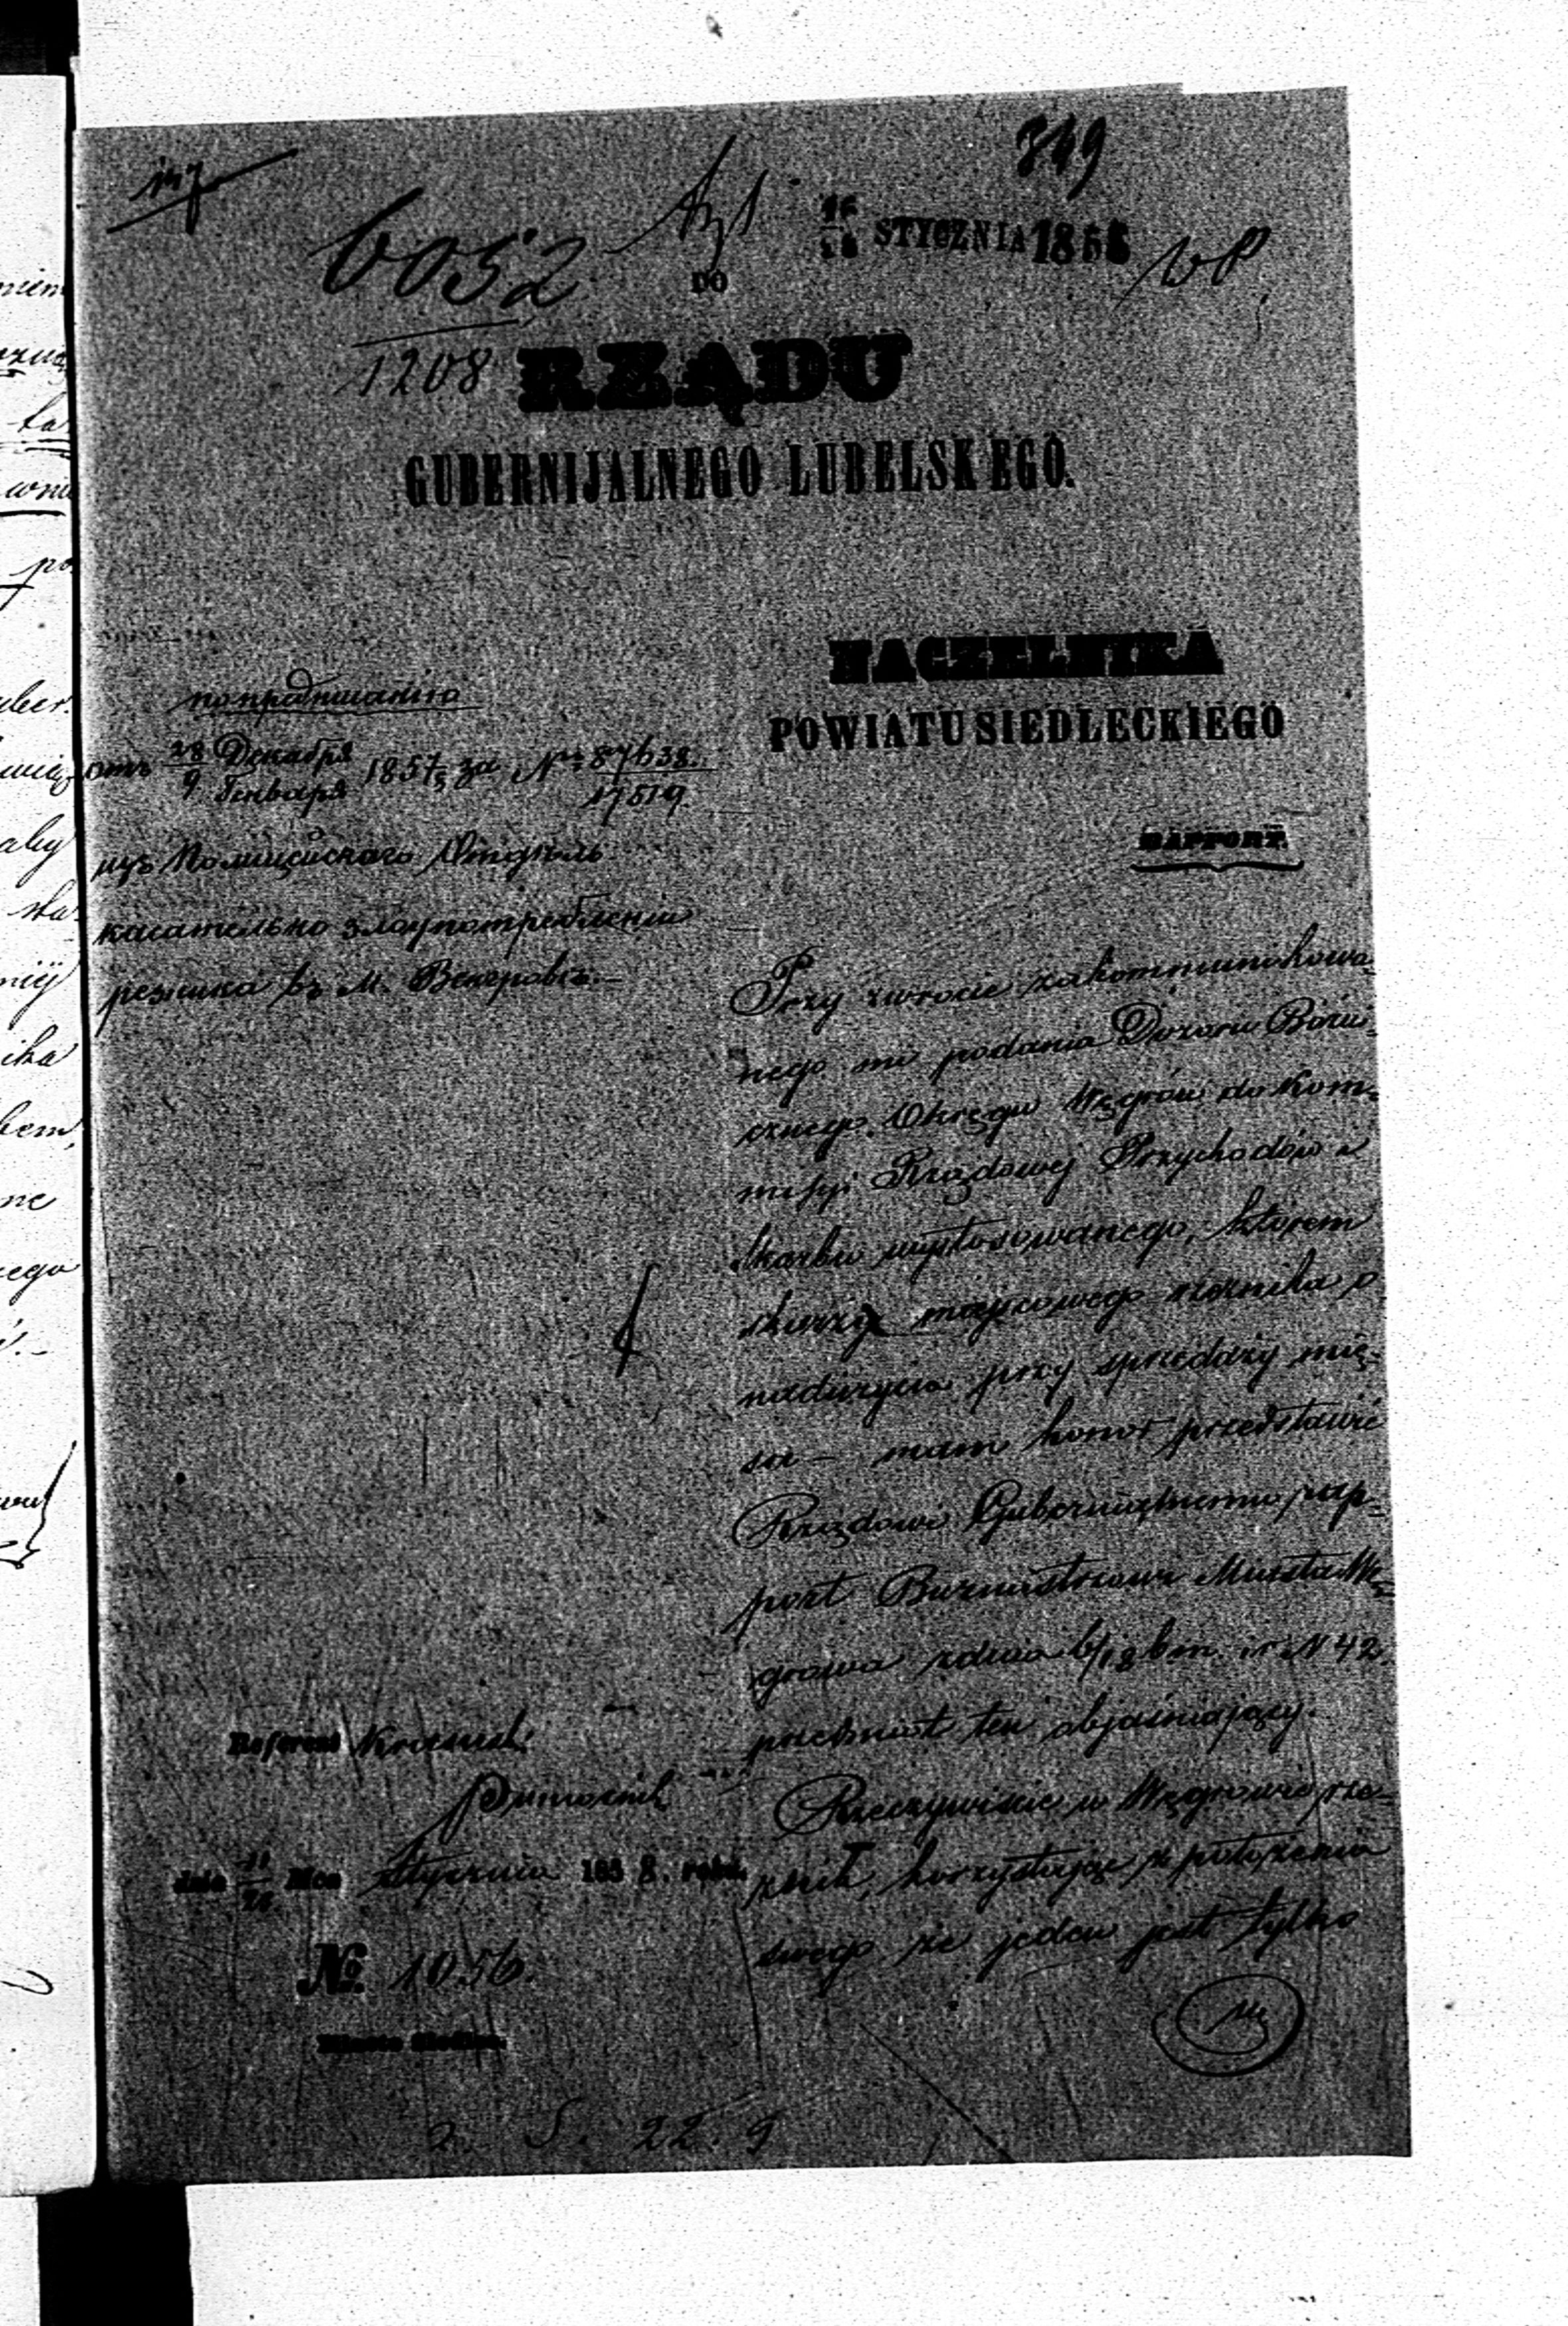 147
849
6052
1208
16/28 STYCZNIA 1858
DO
RZĄDU
GUBERNIJALNEGO LUBELSKIEGO.
NACZELNIKA
POWIATU SIEDLECKIEGO
RAPPORT.
по предписанію
отъ 28 Декабря / 9 Генваря 1857/8 за № 87638 / 17519
изъ Полицейскаго Отдѣл.
касательно злоупотребленія
резника въ м. Венгровѣ.—
Przy zwrocie zakommunikowa-
nego mi podania Dozoru Bóżni-
cznego Okręgu Węgrów do Kom-
misyi Rządowej Przychodów i
Skarbu wystosowanego, którem
skarży miejscowego rzeznika o
nadużycia przy sprzedaży mię-
sa — mam honor przedstawić
Rządowi Gubernialnemu rap-
port Burmistrza Miasta Wę-
growa z dnia 6/18 b m. i r. N 42
przedmiot ten objaśniający.
Rzeczywiście w Węgrowie rze-
znik, korzystając z położenia
swego że jeden jest tylko
Referent
dnia Mca Stycznia 1858. roku.
No. 1056.
Miasto Siedlce.
2. 5. 22. 9